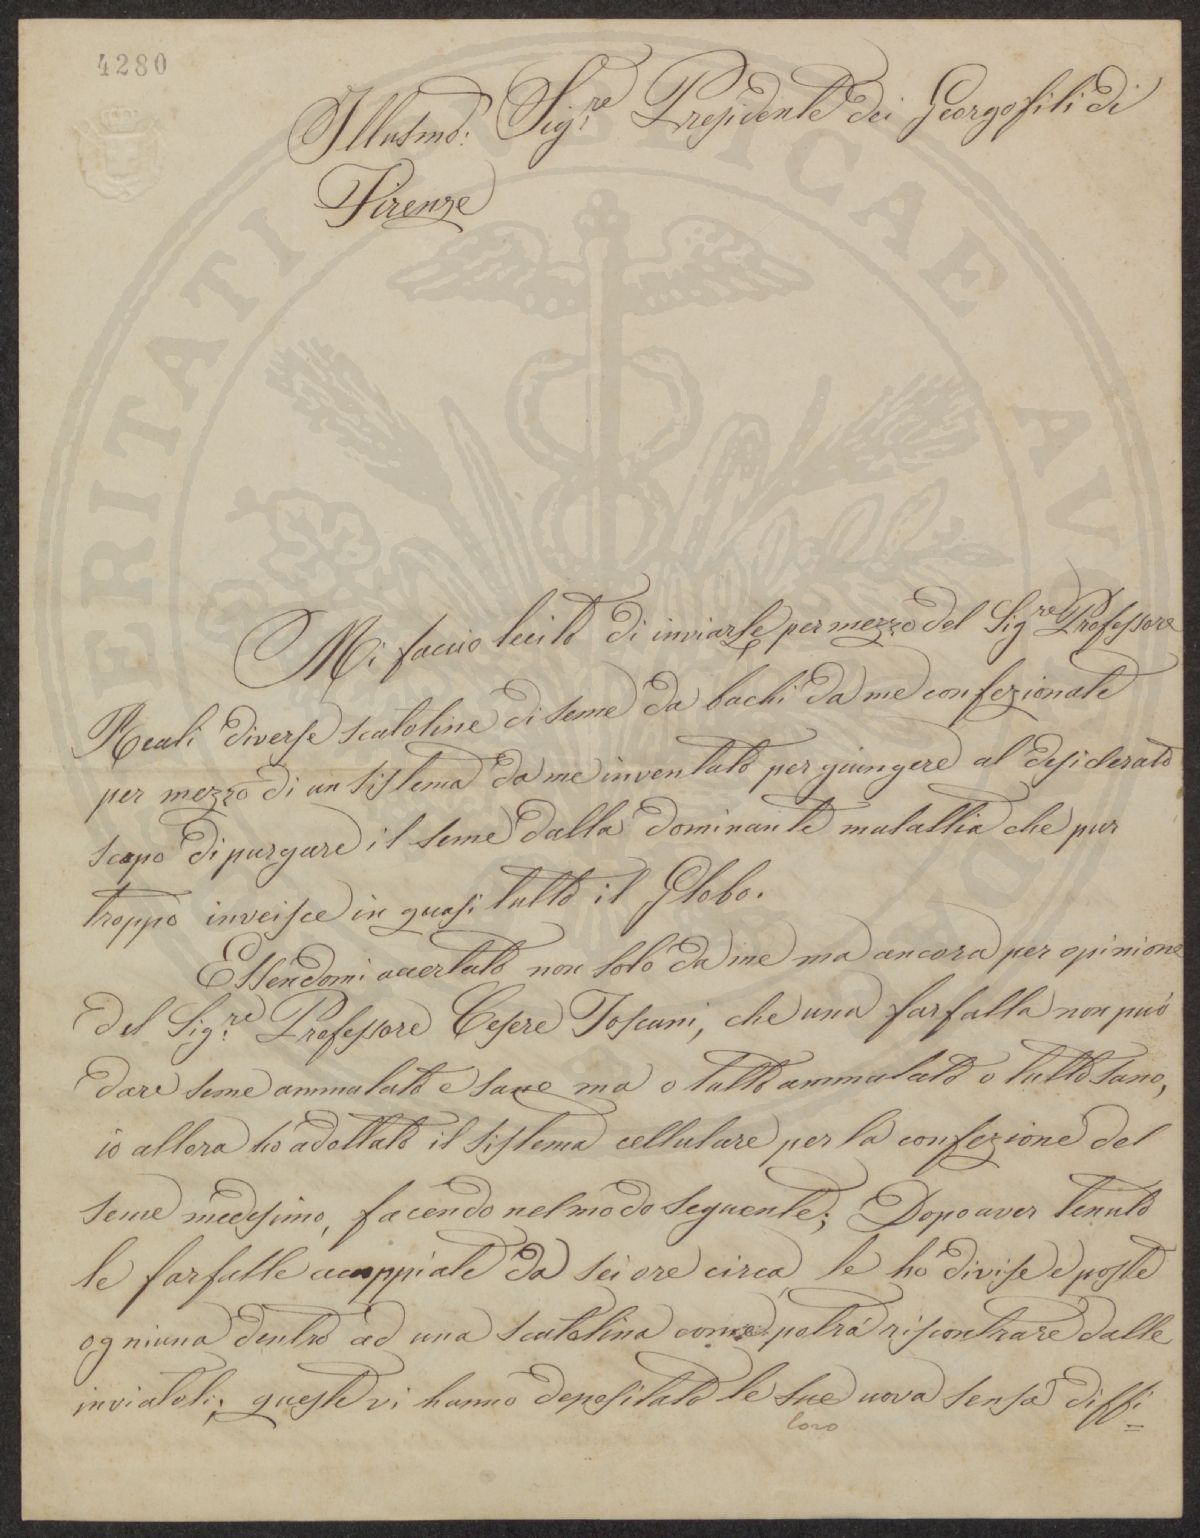 4280
Illusmo: Sigre Presidente dei Georgofili di
Firenze
Mi faccio lecito di inviarle per mezzo del Sigre Professore
Reali diverse scatoline di seme da bachi da me confezionate
per mezzo di un sistema da me inventato per giungere al desiderato
scopo di purgare il seme dalla dominante malattia che pur
troppo inveisce in quasi tutto il Globo.
Essendomi accertato non solo da me ma ancora per opinione
del Sigre Professore Cesere Toscani, che una farfalla non può
dare seme ammalato e sane ma o tutto ammalato o tutto sano,
io allora ho adottato il sistema cellulare per la confezione del
seme medesimo, facendo nel modo seguente; Dopo aver tenuto
le farfalle accoppiate da sei ore circa, le ho divise e poste
ogniuna dentro ad una scatolina come potrà riscontrare dalle
inviateli; queste vi hanno depositato le sue uova sensa diffi=
loro
ERITATI PUBLICAE AVC